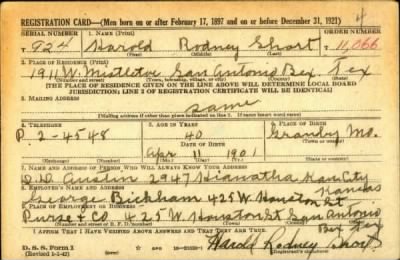 4
REGISTRATION CARD—(Men born on or after February 17, 1897 and on or before December 31, 1921)
SERIAL NUMBER 1. NAME (Print) ORDER NUMBER
T 924 Harold Rodney Short 11,066
2. PLACE OF RESIDENCE (Print)
1911 W. Mistletoe San Antonio Bex. Tex
(Number and street) (Town, township, village, or city) (County) (State)
[THE PLACE OF RESIDENCE GIVEN ON THE LINE ABOVE WILL DETERMINE LOCAL BOARD
JURISDICTION; LINE 2 OF REGISTRATION CERTIFICATE WILL BE IDENTICAL]
3. MAILING ADDRESS
Same
[Mailing address if other than place indicated on line 2. If same insert word same]
4. TELEPHONE 5. AGE IN YEARS 6. PLACE OF BIRTH
P. 2-4548 40 Granby Mo.
DATE OF BIRTH
Apr 11 1901
(Exchange) (Number) (Mo.) (Day) (Yr.) (State or country)
7. NAME AND ADDRESS OF PERSON WHO WILL ALWAYS KNOW YOUR ADDRESS
2947 Hiawatha Kan City
Kansas
8. EMPLOYER'S NAME AND ADDRESS
George Bickham 425 W. Houston St
9. PLACE OF EMPLOYMENT OR BUSINESS
Purse & Co 425 W. Houston St San Antonio
Bex Tex
(Number and street or R. F. D. number) (Town) (County) (State)
I AFFIRM THAT I HAVE VERIFIED ABOVE ANSWERS AND THAT THEY ARE TRUE.
D. S. S. Form 1
(Revised 1-1-42) (over) Harold Rodney Short